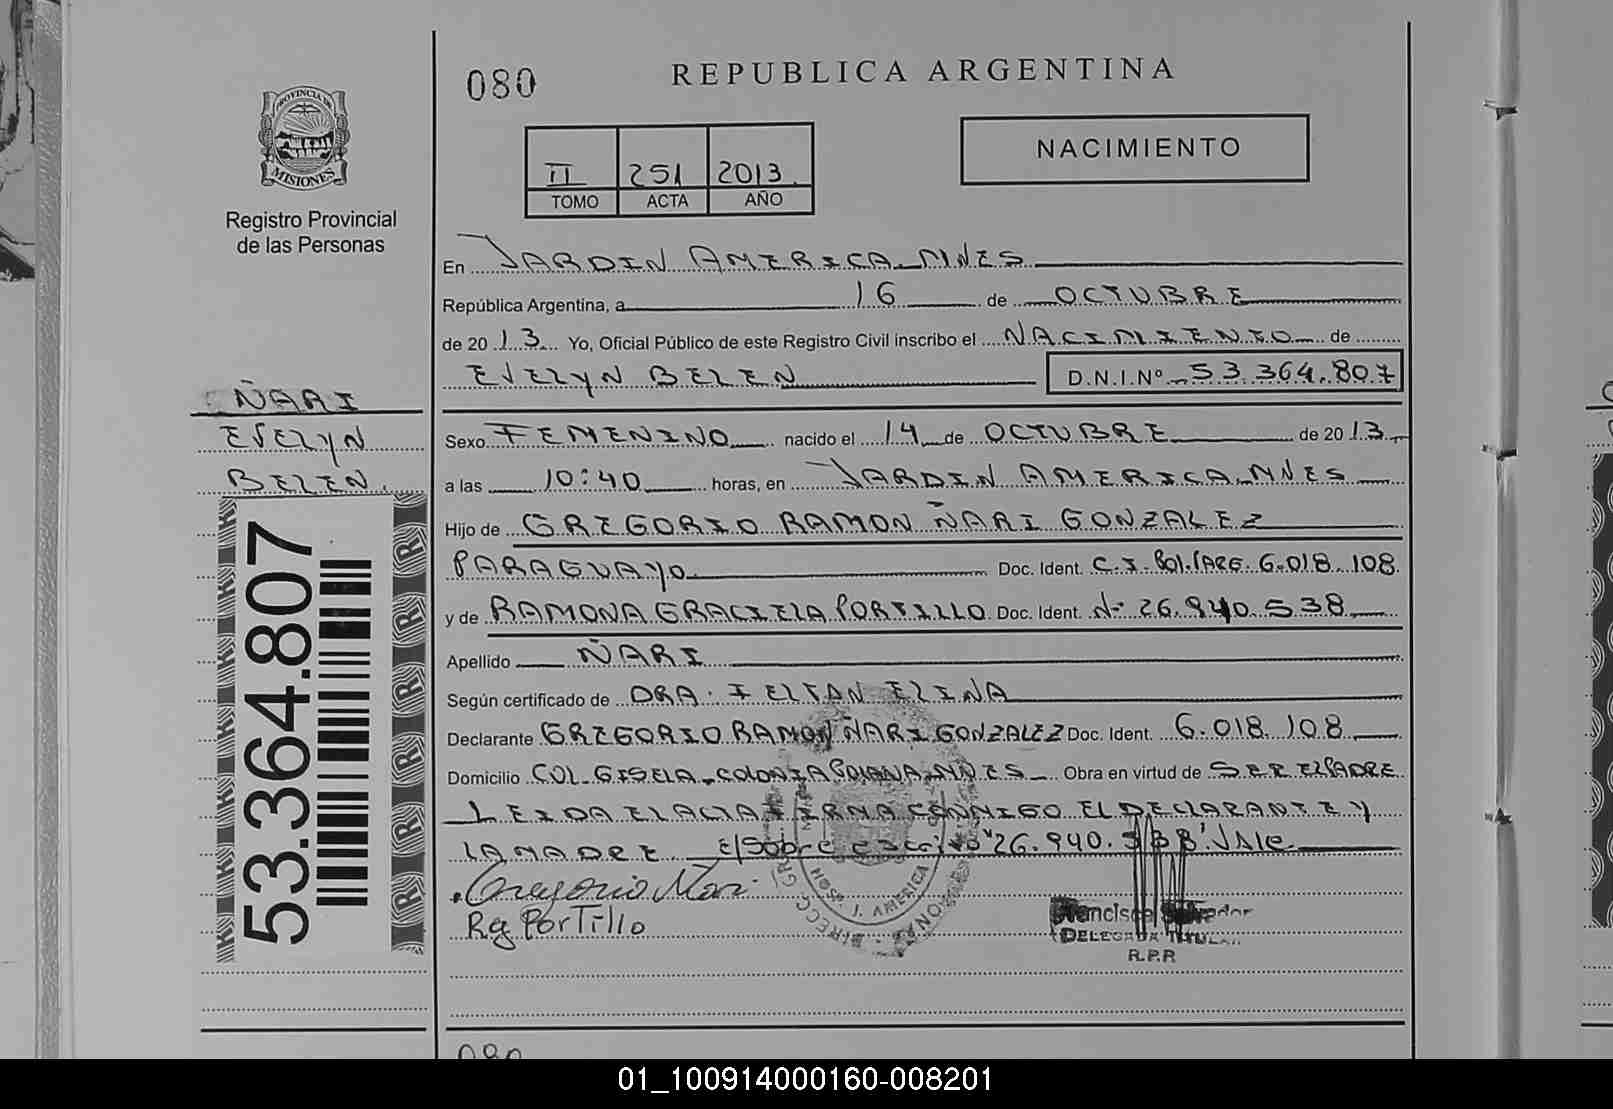 080
REPUBLICA ARGENTINA
PROVINCIA DE
MISIONES
Registro Provincial
de las Personas
II 251 2013
TOMO ACTA AÑO
NACIMIENTO
En JARDIN AMERICA - MNES
República Argentina, a 16 de OCTUBRE
de 20 13 Yo, Oficial Público de este Registro Civil inscribo el NACIMIENTO de
EVELYN BELEN D.N.I.Nº 53.364.807
ÑARI
EVELYN
BELEN.
53.364.807
Sexo FEMENINO nacido el 14 de OCTUBRE de 20 13
a las 10:40 horas, en JARDIN AMERICA - MNES
Hijo de GREGORIO RAMON ÑARI GONZALEZ
PARAGUAYO Doc. Ident. C.I. Pol. Parg. 6.018.108
y de RAMONA GRACIELA PORTILLO Doc. Ident. Nº 26.940.538
Apellido ÑARI
Según certificado de DRA. ELINA
Declarante GREGORIO RAMON ÑARI GONZALEZ Doc. Ident. 6.018.108
Domicilio COL. GISELA - COLONIA POLANA - MNES Obra en virtud de SER EL PADRE
LEIDA EL ACTA FIRMA CONMIGO EL DECLARANTE Y
LA MADRE E/Sobre escrito "26.940.538" Vale
Gregorio Ñari
Rg PorTillo
J. AMERICA
Francisca Salvador
DELEGADA TITULAR
R.P.R
080
01_100914000160-008201